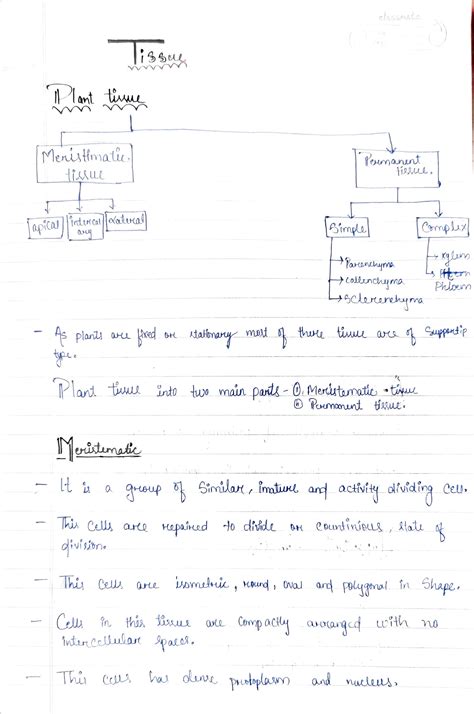 classmate
Tissue
Plant tissue
Meristmatic tissue
Permanent tissue.
apical
intercalary
lateral
Simple
Complex
→ Parenchyma
→ Collenchyma
→ Sclerenchyma
→ xylem
Phloem
- As plants are fixed or stationary most of there tissue are of Supportip
type.
Plant tissue into two main parts - ①. Meristematic tissue
② Permanent tissue.
Meristematic
- It is a group of Similar, imature and activity dividing Cell.
- This Cells are repaired to divide or countinious, state of
division.
- This Cells are isometric, round, oval and polygonal in Shape.
- Cells in this tissue are compactly arranged with no
intercellular spaces.
- This cells has dense protoplasm and nucleus.